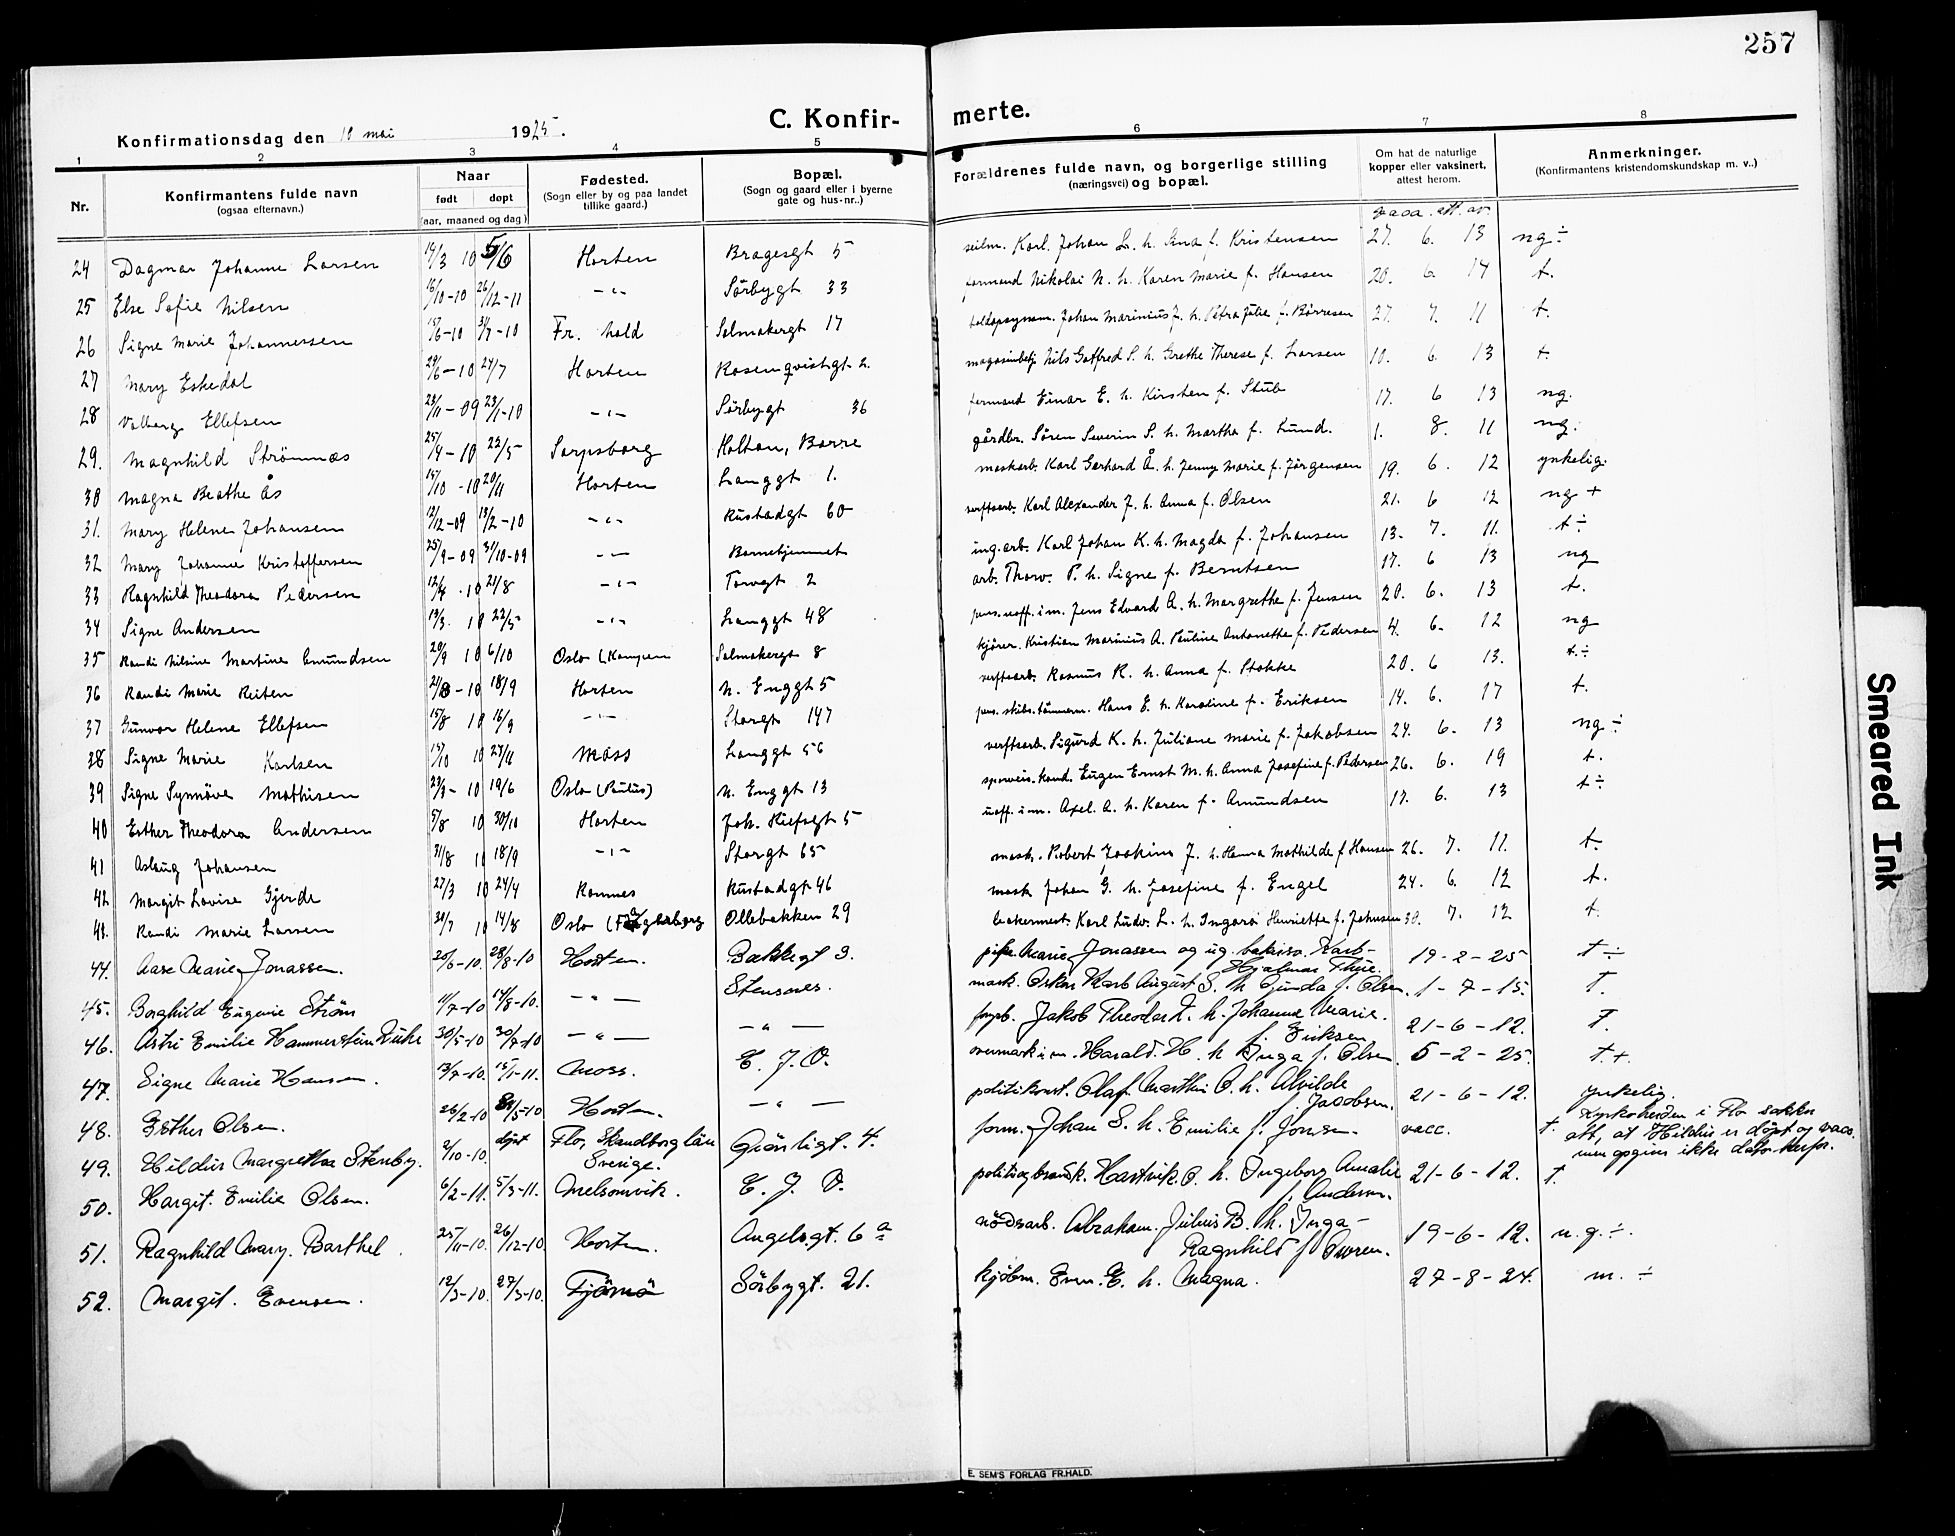 257
C. Konfirmerte.
Konfirmationsdag den 10 mai 1925.
1 2 3 4 5 6 7 8
Nr.
Konfirmantens fulde navn
(ogsaa efternavn.)
Naar
født døpt
(aar, maaned og dag)
Fødested.
(Sogn eller by og paa landet
tillike gaard.)
Bopæl.
(Sogn og gaard eller i byerne
gate og hus-nr..)
Forældrenes fulde navn, og borgerlige stilling
(næringsvei) og bopæl.
Om hat de naturlige
kopper eller vaksinert,
attest herom.
Anmerkninger.
(Konfirmantens kristendomskundskap m. v..)
vacc. att. av.
24 Dagmar Johanne Larsen 14/3 10 5/6 Horten Bragesgt 5 seilm. Karl Johan L. h. Ana f. Kristensen 27. 6. 13 ng ÷
25 Else Sofie Nilsen 16/10-10 26/12-11 -"- Sörbygt 33 formand Nikolai N. h. Karen Marie f. Hansen 20. 6. 14 t.
26 Signe Marie Johannessen 15/6-10 3/7-10 Fr. hald Salmakergt 17 toldopsynsm. Johan Marinius J. h. Petra Julie f. Börresen 27. 7. 11 t.
27 Mary Eskedal 29/6-10 24/7 Horten Rosenqvistgt. 2. Nils Gotfred S. h. Grethe Therese f. Larsen 10. 6. 13 t.
28 Valborg Ellefsen 23/11-09 23/1-10 -"- Sörbygt 36 formand Einar E. h. Kirsten f. Stub 17. 6 13 ng.
29. Magnhild Strömnæs 25/4-10 22/5 Sarpsborg Holtan, Borre gårdbr. Sören Severin S. h. Martha f. Lund. 1. 8. 11 ng.
30 Magna Beathe Ås 15/10-10 20/11 Horten Langgt 1. maskarb. Karl Gerhard Å. h. Jenny Marie f. Jörgensen 19. 6. 12 ynkelig.
31. Mary Helene Johansen 12/12-09 13/2-10 -"- Rustadgt 60 verftsarb. Karl Alexander J. h. Anna f. Olsen 21. 6 12 ng +
32 Mary Johanne Kristoffersen 25/9-09 31/10-09 -"- Barnehjemmet ing.arb. Karl Johan K. h. Magda f. Johansen 13. 7. 11. t ÷
33 Ragnhild Theodora Pedersen 12/4 10 21/8 -"- Torvgt 2 arb. Thorv. P. h. Signe f. Berntsen 17. 6 13 ng
34 Signe Andersen 19/3 10 22/5 -"- Langgt 48 pens. uoff. i m. Jens Edvard A. h. Margrethe f. Jensen 20. 6. 13 t.
35 Randi Nilsine Martine Amundsen 20/9 10 6/10 Oslo (Kampen Salmakergt 8 kjörer. Kristian Marinius A. Pauline Antonette f. Pedersen 4. 6. 12 ng
36 Randi Marie Reiten 21/8-10 18/9 Horten N. Enggt 5 verftsarb. Rasmus R. h. Anna f. Stokke 20. 6 13. t. ÷
37 Gunvor Helene Ellefsen 15/8 10 16/9 -"- Storgt 147 pens. skibs. tömmerm. Hans E. h. Karoline f. Eriksen 14. 6. 17 t.
38 Signe Marie Karlsen 10 27/11 Moss Langgt 56 verftsarb. Sigurd K. h. Juliane Marie f. Jakobsen 24. 6. 13 ng ÷
39 Signe Synnöve Mathisen 23/3-10 19/6 Oslo (Paulus) N. Enggt 13 sporveis. kond. Eugen Ernst M. h. Anna Josefine f. Pedersen 26. 6. 19 t.
40 Esther Theodora Andersen 5/8 10 30/10 Horten Joh. Kiefsgt 5 uoff. i m. Axel A. h. Karen f. Amundsen 17. 6. 13 t ÷
41 Aslaug Johansen 31/8 10 18/9 -"- Storgt 65 mask. Robert Joakim J. h. Hanna Mathilde f Hansen 26. 7. 11. t.
42 Margit Lovise Gjerde 27/3 10 24/4 Ramnes Rustadgt 46 mask Johan G. h. Josefine f. Engel 24. 6. 12 t.
43. Randi Marie Larsen 30/7 10 14/8 Oslo (Fagerborg Ollebakken 29 bakermest. Karl Ludv. L. h. Ingara Henriette f. Johnsen 30. 7. 12 t.
44. Aase Marie Jonassen. 20/6-10. 28/8-10 Horten. Bakkegt 3. pike Marie Jonassen og ug. Karl- 19-2-25 t ÷
Hjalmar Thue.
45. Borghild Eugenie Ström 11/7-10 14/8-10. -"- Stensnes. mask. Oskar Karb August S. h. Gunda f. Olsen. 1-7-15. T.
46. Astri Emilie Hammerstein Duhe 30/5-10 30/7-10 -"- -"- Jakob Theodor D. h. Johanne Marie. 21-6-12. T.
f. Eriksen
47. Signe Marie Hansen. 13/7-10. 15/1-11. Moss. C. J. V. overmask i m. Harald. H. h Inga f. Olsen 5-2-25. t. +
48. Esther Olsen. 26/2-10 /5-10 Horten. -"- politikonst. Olaf Marthin O. h. Alvilde 21-6-12. ynkelig.
f. Jacobsen.
49. Hildur Margretha Stenby. 2/10-10. döpt Flo, Skaraborg län Grönligt. 4. form. Johan S. h. Emilie f. Jonsen vacc. t. Kyrkoherden i Flo sokkn
Sverige. att, at Hildur er döpt og vacc.
men opgives ikke dato herfor.
50. Margit Emilie Olsen. 6/2-11. 5/3-11. Melsomvik. C. J. V. Hartvik O. h. Ingeborg Amalie 21-6-12. t.
f. Andersen.
51. Ragnhild Mary. Barthel. 25/11-10. 26/12-10. Horten. Angelsgt. 6 a nödsarb. Abraham. Julius B. h. Inga- 19-6-12. n.g. ÷.
Ragnhild f.
52. Margit. Evensen. 12/3-10. 27/3-10. Tjömö Sörbygt. 21. kjöbm. Even. E. h. Magna. 27-8-24. m. ÷
E. SEM'S FORLAG FR.HALD.
Smeared Ink